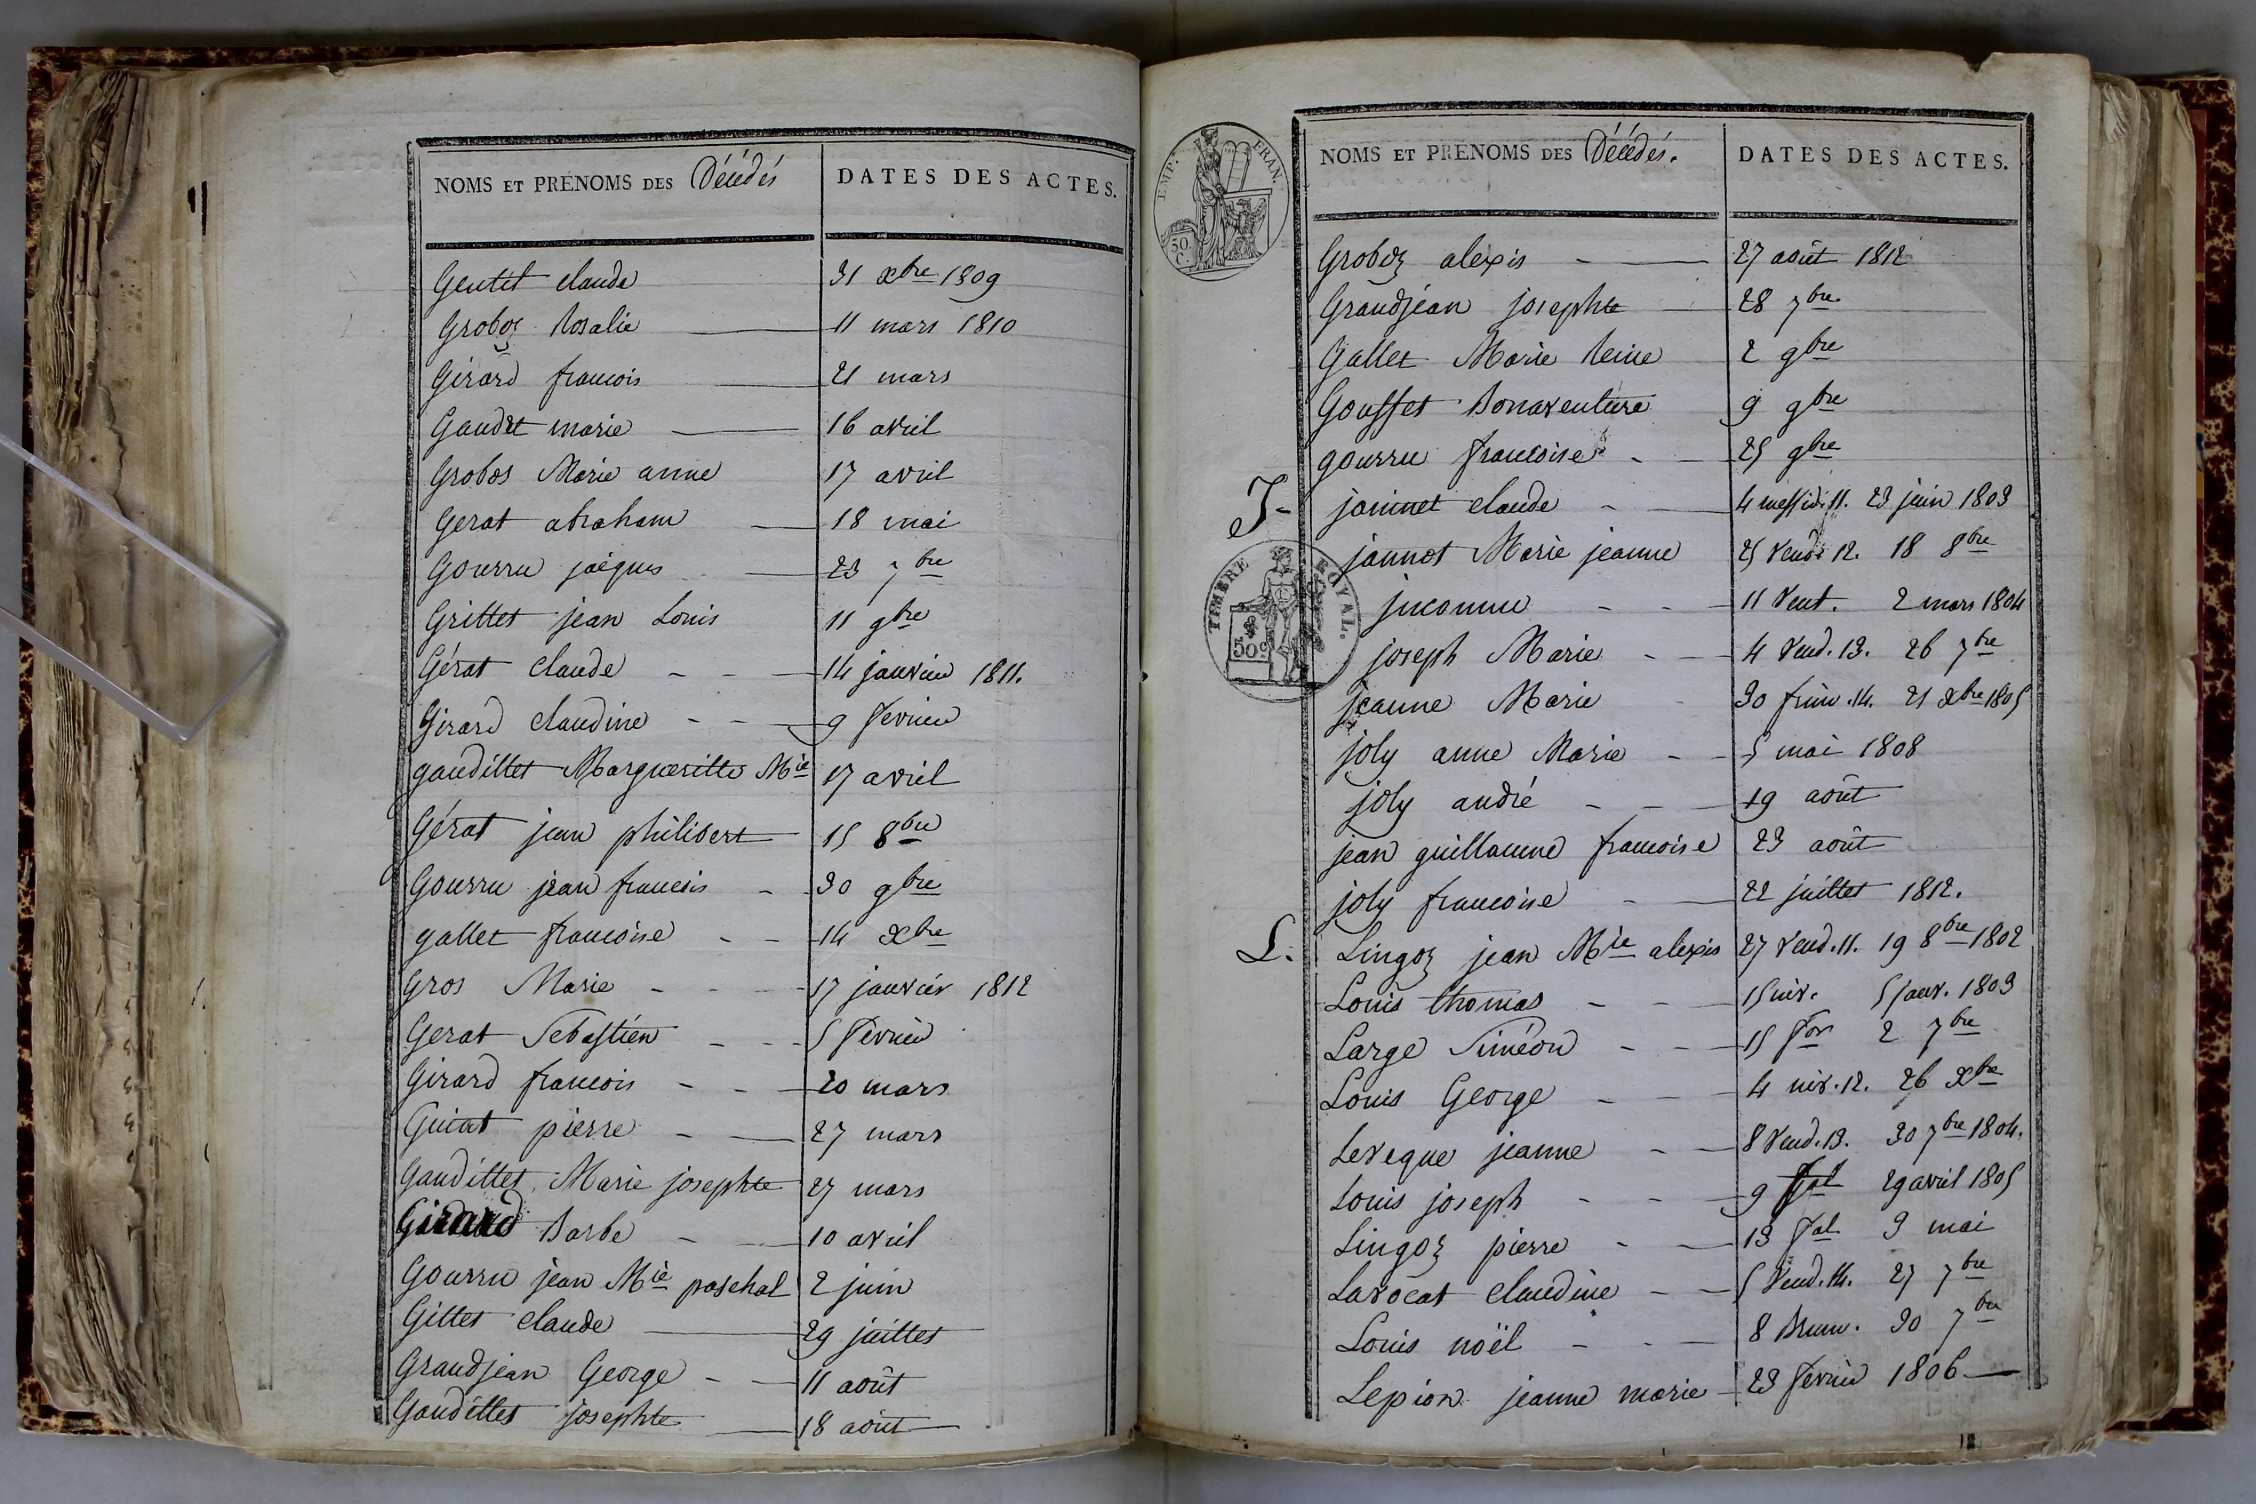 NOMS ET PRÉNOMS DES Décédés
DATES DES ACTES.
Gentit claude 31 xbre 1809
Groboz Rosalie 11 mars 1810
Girard francois 21 mars
Gaudet marie 16 avril
Grobos Marie anne 17 avril
Gerat abraham 18 mai
Gourru jacques 23 7bre
Grittet jean Louis 11 9bre
Gérat claude 14 janvier 1811.
Girard claudine 9 fevrier
gaudillet Margueritte Mie 17 avril
Gérat jean philibert 15 8bre
Gourru jean francois 30 9bre
gallet francoise 14 xbre
Gros Marie 17 janvier 1812
Gerat Sebastien 5 fevrier
Girard francois 20 mars
Guiat pierre 27 mars
Gaudillet Marie josephte 27 mars
Girard Barbe 10 avril
Gourru jean Mie paschal 2 juin
Gillet claude 29 juillet
Grandjean George 11 août
Gaudillet josephte 18 août
EMP. FRAN.
50 C.
NOMS ET PRÉNOMS DES Décédés.
DATES DES ACTES.
Groboz alexis 27 août 1812
Grandjean josephte 28 7bre
Gallet Marie Reine 2 9bre
Gousset Bonaventure 9 9bre
gourru francoise 25 9bre
J- janinet claude 4 messid. 11. 23 juin 1803
jannot Marie jeanne 25 vend. 12. 18 8bre
TIMBRE ROYAL.
50c
jnconnu 11 vent. 2 mars 1804
joseph Marie 4 vend. 13. 26 7bre
jeanne Marie 30 frim. 14. 21 xbre 1805
joly anne Marie 5 mai 1808
joly andré 19 août
jean guillaume francoise 23 août
joly francoise 22 juillet 1812.
L. Lingoz jean Mie alexis 27 vend. 11. 19 8bre 1802
Louis thomas 15 niv. 5 janv. 1803
Large Siméon 15 for 2 7bre
Louis George 4 niv. 12. 26 xbre
Leveque jeanne 8 vend. 13. 30 7bre 1804.
Louis joseph 9 fal 29 avril 1805
Lingoz pierre 13 fal 3 mai
Lavocat claudine 5 vend. 14. 27 7bre
Louis noël 8 Brum. 30 7bre
Lepion jeanne marie 23 fevrier 1806